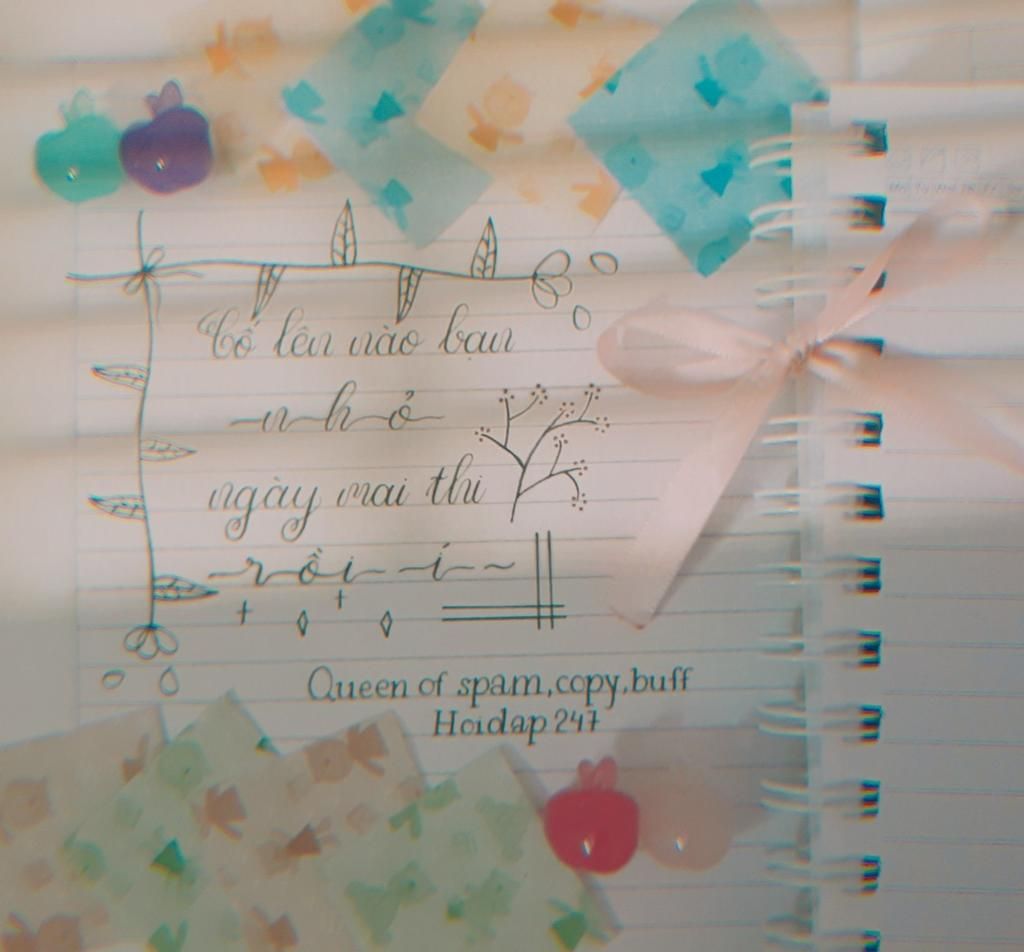 Cố lên nào bạn
nhỏ
ngày mai thi
rồi í~
Queen of spam,copy,buff
Hoidap 247